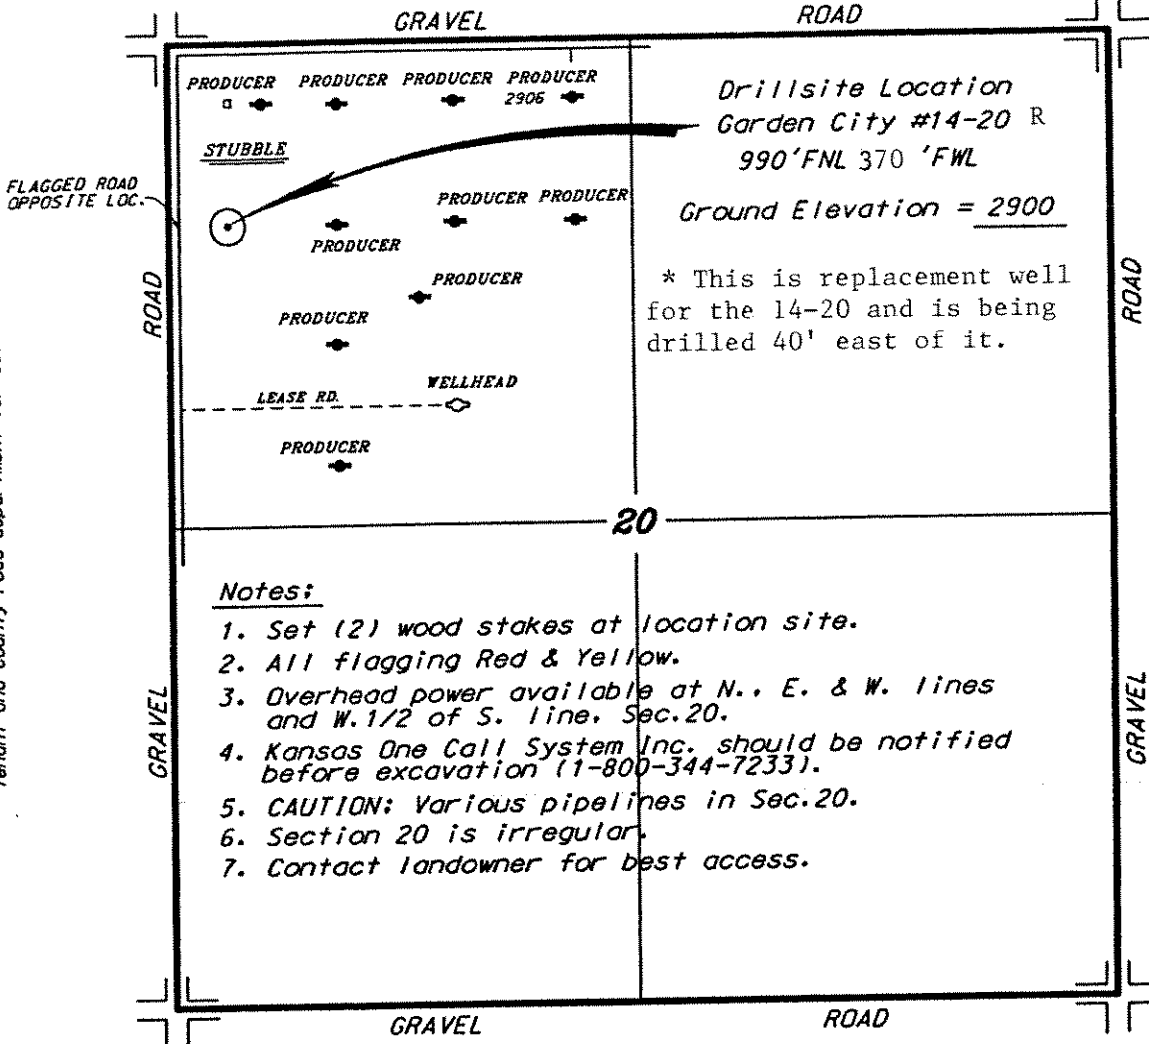 GRAVEL ROAD
PRODUCER PRODUCER PRODUCER PRODUCER
2906
STUBBLE
FLAGGED ROAD
OPPOSITE LOC.
PRODUCER PRODUCER
PRODUCER
PRODUCER
PRODUCER
LEASE RD.
WELLHEAD
PRODUCER
Drillsite Location
Garden City #14-20 R
990'FNL 370 'FWL
Ground Elevation = 2900
* This is replacement well
for the 14-20 and is being
drilled 40' east of it.
ROAD
ROAD
20
GRAVEL
GRAVEL
Notes:
1. Set (2) wood stakes at location site.
2. All flagging Red & Yellow.
3. Overhead power available at N., E. & W. lines
and W.1/2 of S. line. Sec.20.
4. Kansas One Call System Inc. should be notified
before excavation (1-800-344-7233).
5. CAUTION: Various pipelines in Sec.20.
6. Section 20 is irregular.
7. Contact landowner for best access.
GRAVEL ROAD